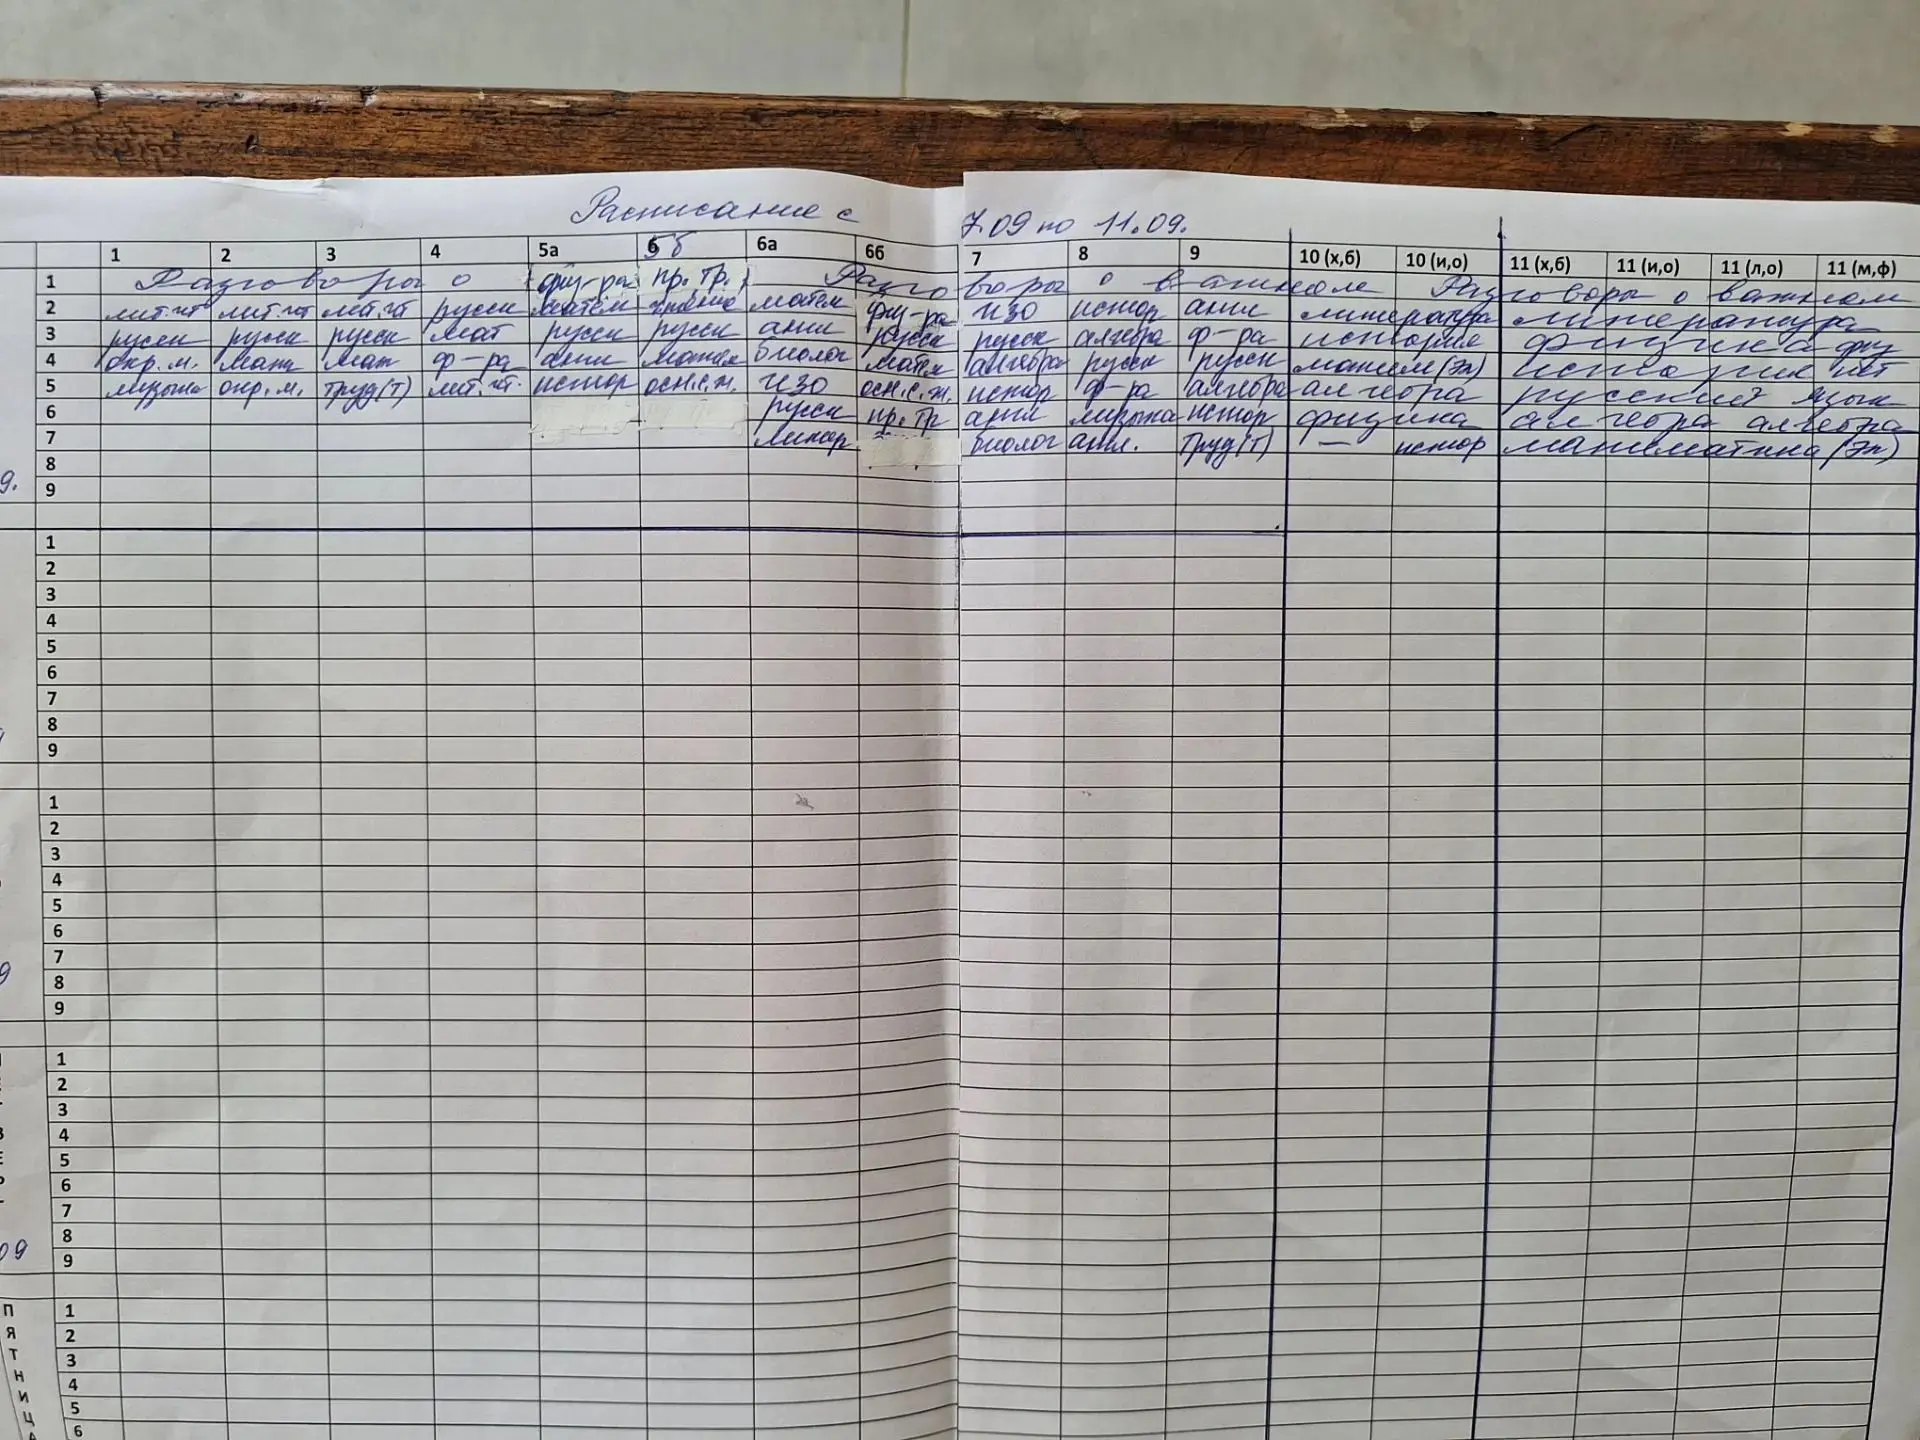 Расписание с 7.09 по 11.09.
1 2 3 4 5а 5б 6а 6б 7 8 9 10 (х,б) 10 (и,о) 11 (х,б) 11 (и,о) 11 (л,о) 11 (м,ф)
1 Разговоры о физ-ра пр. тр. Разговоры о важном Разговоры о важном
2 лит.чт лит.чт лит.чт русск матем матем физ-ра ИЗО истор англ литература литература
3 русск русск русск мат русск русск англ русск русск алгебра ф-ра история физика физ
4 окр.м. мат ф-ра англ матем биолог матем алгебра русск русск матем (Эл) история
5 музыка окр.м. труд(т) лит.чт. истор осн.с.ж. ИЗО осн.с.ж. истор ф-ра алгебра алгебра русский язык
6 русск пр.тр англ музыка истор физика алгебра алгебра
7 литер биолог англ. Труд(т) — истор математика (Эл)
8
9. 9
1
2
3
4
5
6
7
8
9
1
2
3
4
5
6
7
8
9 9
1
2
3
4
5
6
7
8
09 9
ПЯТНИЦА 1
2
3
4
5
6